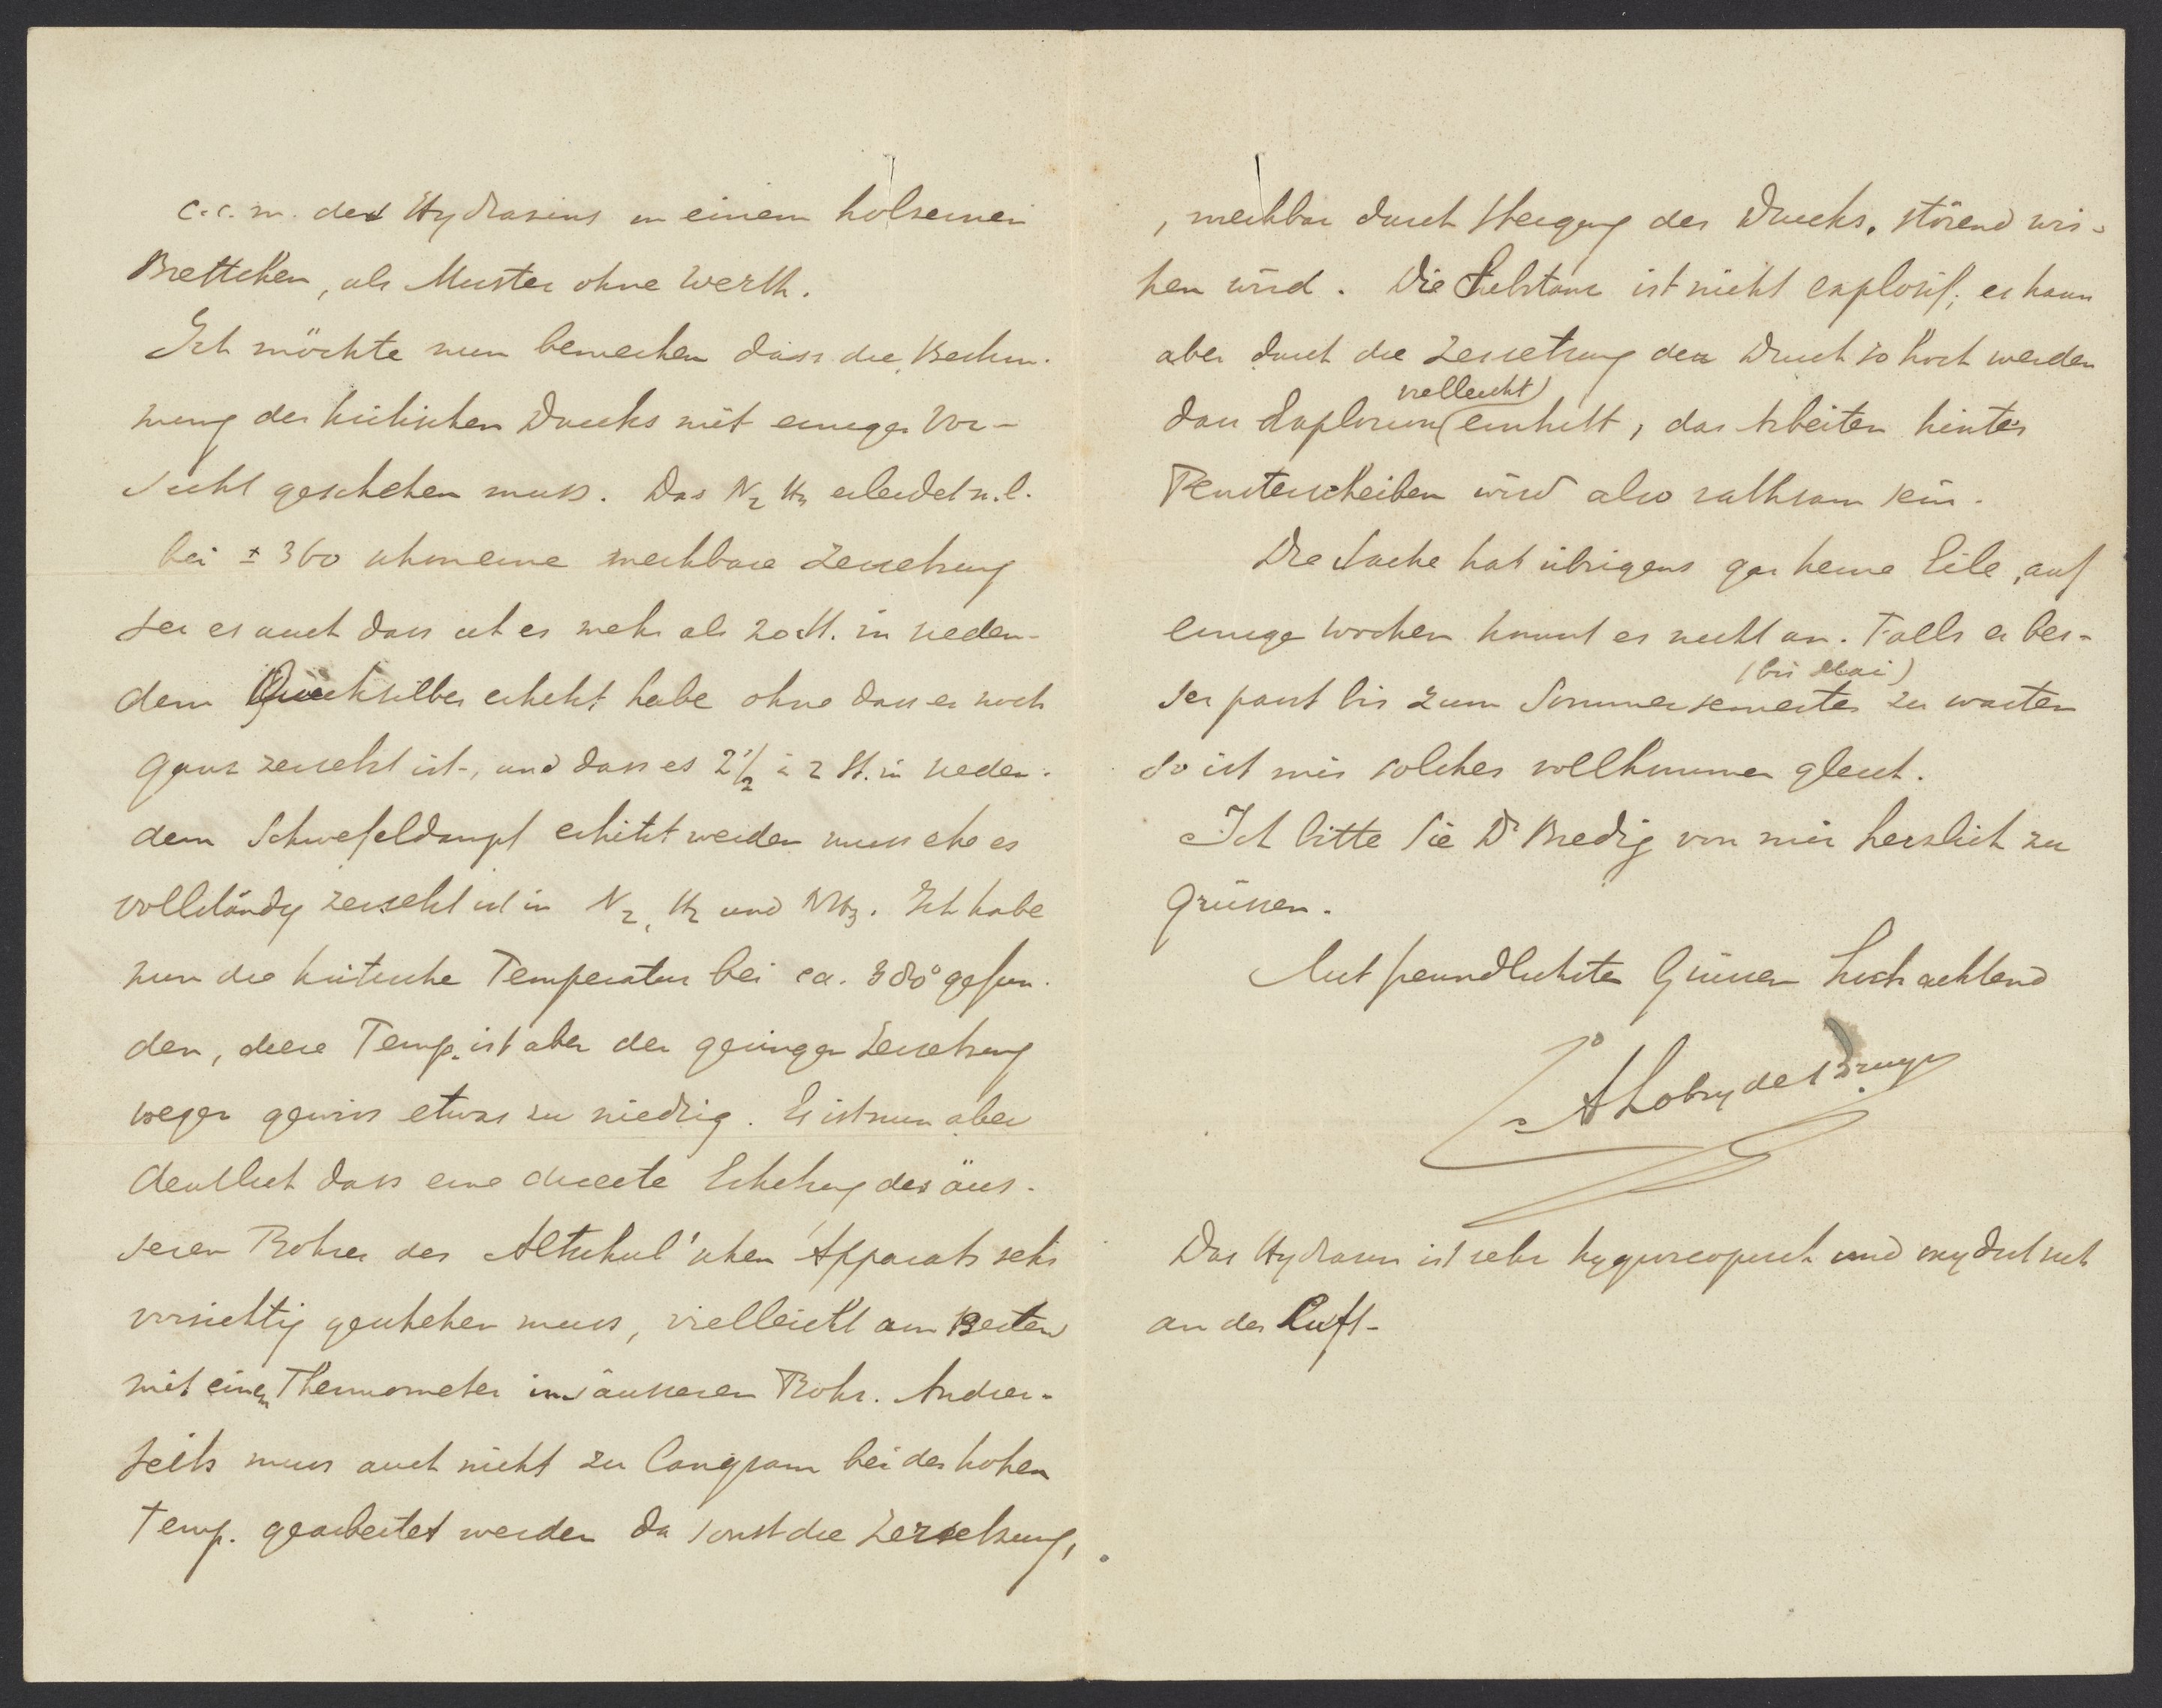 c.c.m. des Hydrazins in einem hölzernen
Brettchen, als Muster ohne Werth.
Ich möchte nun bemerken dass die Bestim-
mung des kritischen Drucks mit einiger Vor-
sicht geschehen muss. Das N2 H4 erleidet n.l.
bei ± 360 schon eine merkbare Zersetzung
sei es auch dass ich es mehr als 20 St. in sieden-
dem Quecksilber erhitzt habe ohne dass es noch
ganz zersetzt ist, und dass es 2 1/2 à 2 St. in sieden-
dem Schwefeldampf erhitzt werden muss ehe es
vollständig zersetzt ist in N2, H2 und NH3. Ich habe
nun die kritische Temperatur bei ca. 380° gefun-
den, diese Temp. ist aber der geringen Zersetzung
wegen gewiss etwas zu niedrig. Es ist nun aber
deutlich dass eine directe Erhitzung des äus-
seren Rohres des Altschul'schen Apparats sehr
vorsichtig geschehen muss, vielleicht am Besten
mit einem Thermometer im äusseren Rohr. Andrer-
seits muss auch nicht zu langsam bei der hohen
Temp. gearbeitet werden da sonst die Zersetzung,
, merkbar durch Steigung des Drucks, störend wir-
ken wird. Die Substanz ist nicht explosif; es kann
aber durch die Zersetzung der Druck so hoch werden
vielleicht
dass Explosion einhilt, das Arbeiten hinter
Fensterscheiben wird also rathsam sein.
Die Sache hat übrigens gar keine Eile, auf
einige Wochen kommt es nicht an. Falls es bes-
(bis Mai)
ser passt bis zum Sommersemester zu warten
so ist mir solches vollkommen gleich.
Ich bitte Sie Dr Bredig von mir herzlich zu
grüssen.
Mit freundlichsten Grüssen hochachtend
A Lobry de Bruyn
Das Hydrazin ist sehr hygroscopisch und oxydirt sich
an der Luft-